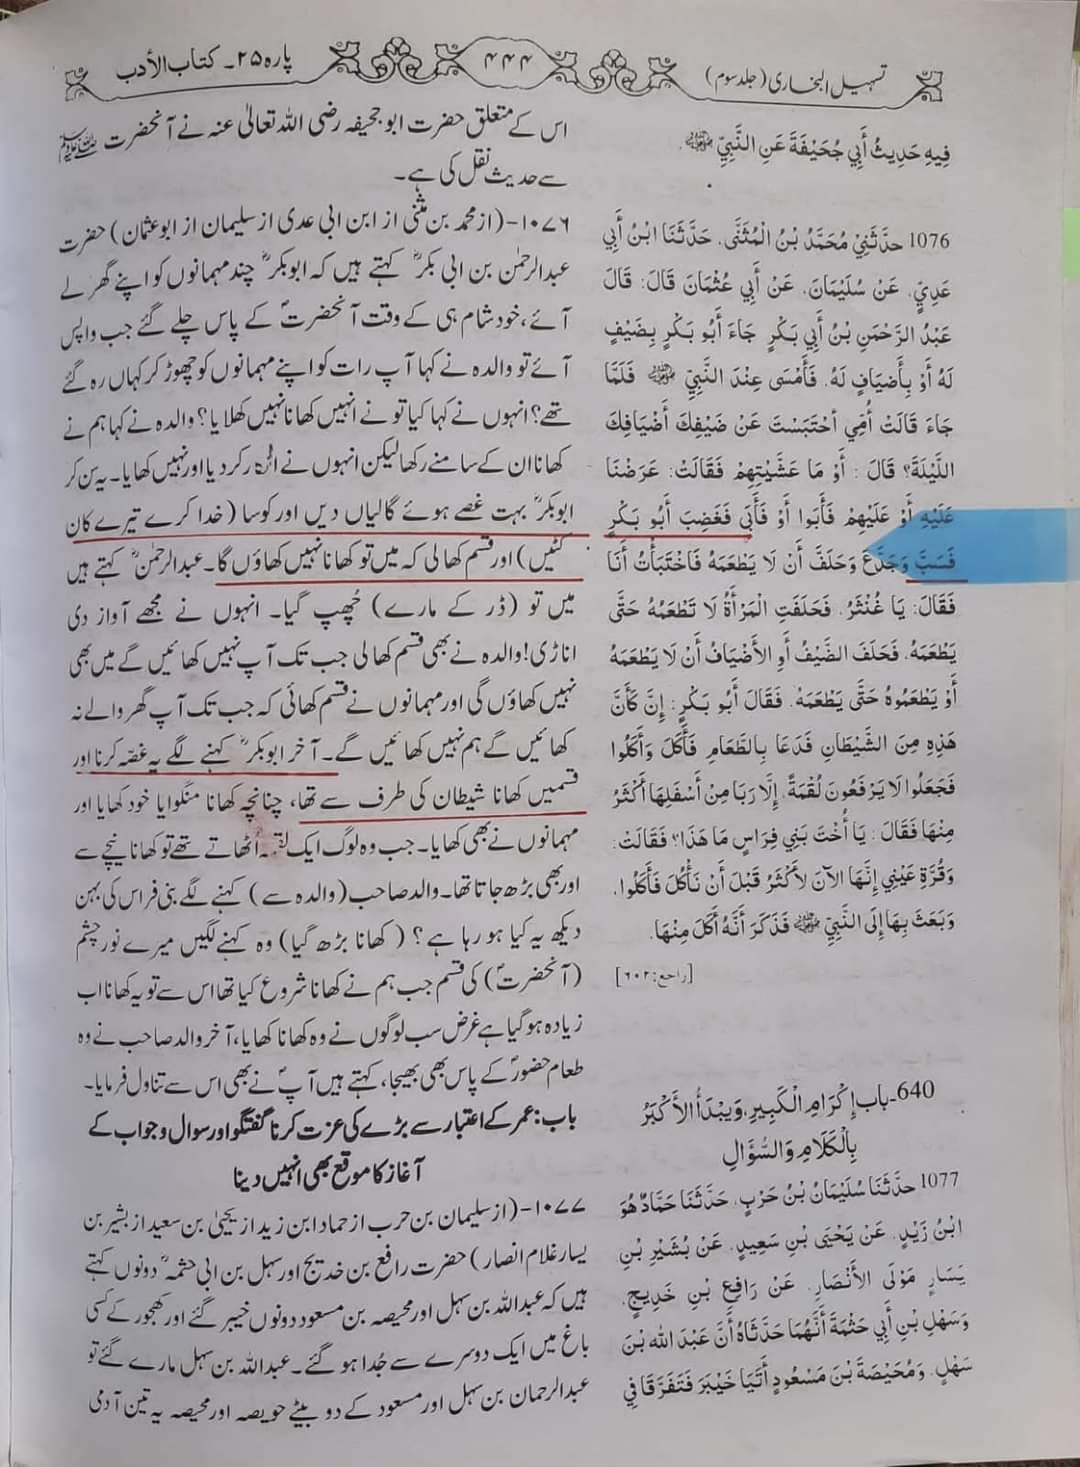 تسہیل البخاری (جلد سوم)
۴۴۴
پارہ ۲۵۔ کتاب الأدب
فِيهِ حَدِيثُ أَبِي جُحَيْفَةَ عَنِ النَّبِيِّ ﷺ.
1076 حَدَّثَنِيْ مُحَمَّدُ بْنُ الْمُثَنَّى. حَدَّثَنَا ابْنُ أَبِي
عَدِيٍّ. عَنْ سُلَيْمَانَ. عَنْ أَبِي عُثْمَانَ قَالَ: قَالَ
عَبْدُ الرَّحْمَنِ بْنُ أَبِي بَكْرٍ جَاءَ أَبُو بَكْرٍ بِضَيْفٍ
لَهُ أَوْ بِأَضْيَافٍ لَهُ. فَأَمْسَى عِنْدَ النَّبِيِّ ﷺ فَلَمَّا
جَاءَ قَالَتْ أُمِّي احْتَبَسْتَ عَنْ ضَيْفِكَ أَضْيَافِكَ
اللَّيْلَةَ؟ قَالَ : أَوْ مَا عَشَّيْتِهِمْ فَقَالَتْ: عَرَضْنَا
عَلَيْهِ أَوْ عَلَيْهِمْ فَأَبَوا أَوْ فَأَبَى فَغَضِبَ أَبُو بَكْرٍ
فَسَبَّ وَجَدَّعَ وَحَلَفَ أَنْ لَا يَطْعَمَهُ فَاخْتَبَأْتُ أَنَا
فَقَالَ: يَا غُنْثَرُ. فَحَلَفَتِ الْمَرْأَةُ لَا تَطْعَمُهُ حَتَّى
يَطْعَمَهُ. فَحَلَفَ الضَّيْفُ أَوِ الأَضْيَافُ أَنْ لَا يَطْعَمَهُ
أَوْ يَطْعَمُوهُ حَتَّى يَطْعَمَهُ. فَقَالَ أَبُو بَكْرٍ: إِنَّ كَأَنَّ
هَذِهِ مِنَ الشَّيْطَانِ فَدَعَا بِالطَّعَامِ فَأَكَلَ وَأَكَلُوا
فَجَعَلُوا لَا يَرْفَعُونَ لُقْمَةً. إِلَّا رَبَا مِنْ أَسْفَلِهَا أَكْثَرُ
مِنْهَا فَقَالَ : يَا أُخْتَ بَنِي فِرَاسٍ مَا هَذَا؟ فَقَالَتْ:
وَقُرَّةِ عَيْنِي إِنَّهَا الآنَ لأَكْثَرُ قَبْلَ أَنْ نَأْكُلَ فَأَكَلُوا.
وَبَعَثَ بِهَا إِلَى النَّبِيِّ ﷺ فَذَكَرَ أَنَّهُ أَكَلَ مِنْهَا.
[راجع: ٦٠٢]
640-باب إِكْرَامِ الْكَبِيرِ، وَيَبْدَأُ الأَكْبَرُ
بِالْكَلَامِ وَالسُّؤَالِ
1077 حَدَّثَنَا سُلَيْمَانُ بْنُ حَرْبٍ. حَدَّثَنَا حَمَّادٌ هُوَ
ابْنُ زَيْدٍ. عَنْ يَحْيَى بْنِ سَعِيدٍ. عَنْ بُشَيْرِ بْنِ
يَسَارٍ مَوْلَى الأَنْصَارِ. عَنْ رَافِعِ بْنِ خَدِيجٍ.
وَسَهْلِ بْنِ أَبِي حَثْمَةَ أَنَّهُمَا حَدَّثَاهُ أَنَّ عَبْدَ الله بْنَ
سَهْلٍ. وَمُحَيِّصَةَ بْنَ مَسْعُودٍ أَتَيَا خَيْبَرَ فَتَفَرَّقَا فِي
اس کے متعلق حضرت ابو جحیفہ رضی اللہ تعالیٰ عنہ نے آنحضرت ﷺ
سے حدیث نقل کی ہے۔
۱۰۷۶-(از محمد بن مثنیٰ از ابن ابی عدی از سلیمان از ابوعثمان) حضرت
عبدالرحمٰن بن ابی بکرؓ کہتے ہیں کہ ابوبکرؓ چند مہمانوں کو اپنے گھر لے
آئے، خود شام ہی کے وقت آنحضرتؐ کے پاس چلے گئے جب واپس
آئے تو والدہ نے کہا آپ رات کو اپنے مہمانوں کو چھوڑ کر کہاں رہ گئے
تھے؟ انہوں نے کہا کیا تو نے انہیں کھانا نہیں کھلایا؟ والدہ نے کہا ہم نے
کھانا ان کے سامنے رکھا لیکن انہوں نے انکار کر دیا اور نہیں کھایا۔ یہ سن کر
ابوبکرؓ بہت غصے ہوئے گالیاں دیں اور کوسا (خدا کرے تیرے کان
کٹیں) اور قسم کھالی کہ میں تو کھانا نہیں کھاؤں گا۔ عبدالرحمٰنؓ کہتے ہیں
میں تو (ڈر کے مارے) چُھپ گیا۔ انہوں نے مجھے آواز دی
اناڑی! والدہ نے بھی قسم کھالی جب تک آپ نہیں کھائیں گے میں بھی
نہیں کھاؤں گی اور مہمانوں نے قسم کھائی کہ جب تک آپ گھر والے نہ
کھائیں گے ہم نہیں کھائیں گے۔ آخر ابوبکرؓ کہنے لگے یہ غصّہ کرنا اور
قسمیں کھانا شیطان کی طرف سے تھا، چنانچہ کھانا منگوایا خود کھایا اور
مہمانوں نے بھی کھایا۔ جب وہ لوگ ایک لقمہ اٹھاتے تھے تو کھانا نیچے سے
اور بھی بڑھ جاتا تھا۔ والد صاحب (والدہ سے) کہنے لگے بنی فراس کی بہن
دیکھ یہ کیا ہو رہا ہے؟ (کھانا بڑھ گیا) وہ کہنے لگیں میرے نور چشم
(آنحضرتؐ) کی قسم جب ہم نے کھانا شروع کیا تھا اس سے تو یہ کھانا اب
زیادہ ہو گیا ہے غرض سب لوگوں نے وہ کھانا کھایا، آخر والد صاحب نے وہ
طعام حضورؐ کے پاس بھی بھیجا، کہتے ہیں آپؐ نے بھی اس سے تناول فرمایا۔
باب: عمر کے اعتبار سے بڑے کی عزت کرنا گفتگو اور سوال و جواب کے
آغاز کا موقع بھی انہیں دینا
۱۰۷۷-(از سلیمان بن حرب از حماد ابن زید از یحیٰی بن سعید از بشیر بن
یسار غلام انصار) حضرت رافع بن خدیج اور سہل بن ابی حثمہؓ دونوں کہتے
ہیں کہ عبداللہ بن سہل اور محیصہ بن مسعود دونوں خیبر گئے اور کھجور کے کسی
باغ میں ایک دوسرے سے جُدا ہو گئے۔ عبداللہ بن سہل مارے گئے تو
عبدالرحمان بن سہل اور مسعود کے دو بیٹے حویصہ اور محیصہ یہ تین آدمی